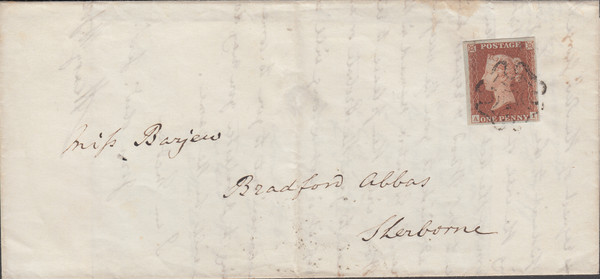 POSTAGE
ONE PENNY
Miss Barjew
Bradford Abbas
Sherborne